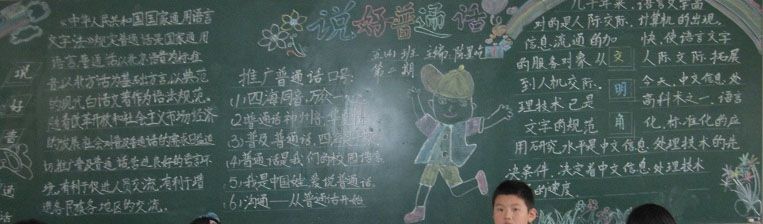 说好普通话
《中华人民共和国国家通用语言
文字法》规定普通话是国家通用
语言。普通话以北京语音为标准
音，以北方话为基础方言，以典范
的现代白话文著作为语法规范。
随着改革开放和社会主义市场经济
的发展，社会对普及普通话的需求日益迫
切。推广普及普通话，营造良好的语言环
境，有利于促进人员交流，有利于增
进各民族各地区的交流。
说
好
普
通
话
五(4)班 主编:陈
第二期
推广普通话口号:
(1)四海同音,万众一
(2)普通话神州
(3)普及普通话,四海
(4)普通话是我们的校园语言
(5)我是中国娃,爱说普通话.
(6)沟通——从普通话开始
几十年来,语言文字面
对的是人际交际,计算机的出现,
信息流通的加快,使语言文字
的服务对象从人际交际拓展
到人机交际。今天,中文信息处
理技术已是高科术之一,语言
文字的规范化,标准化的应
用研究水平是中文信息处理技术的先
决条件,决定着中文信息处理技术
的速度
文
明
角